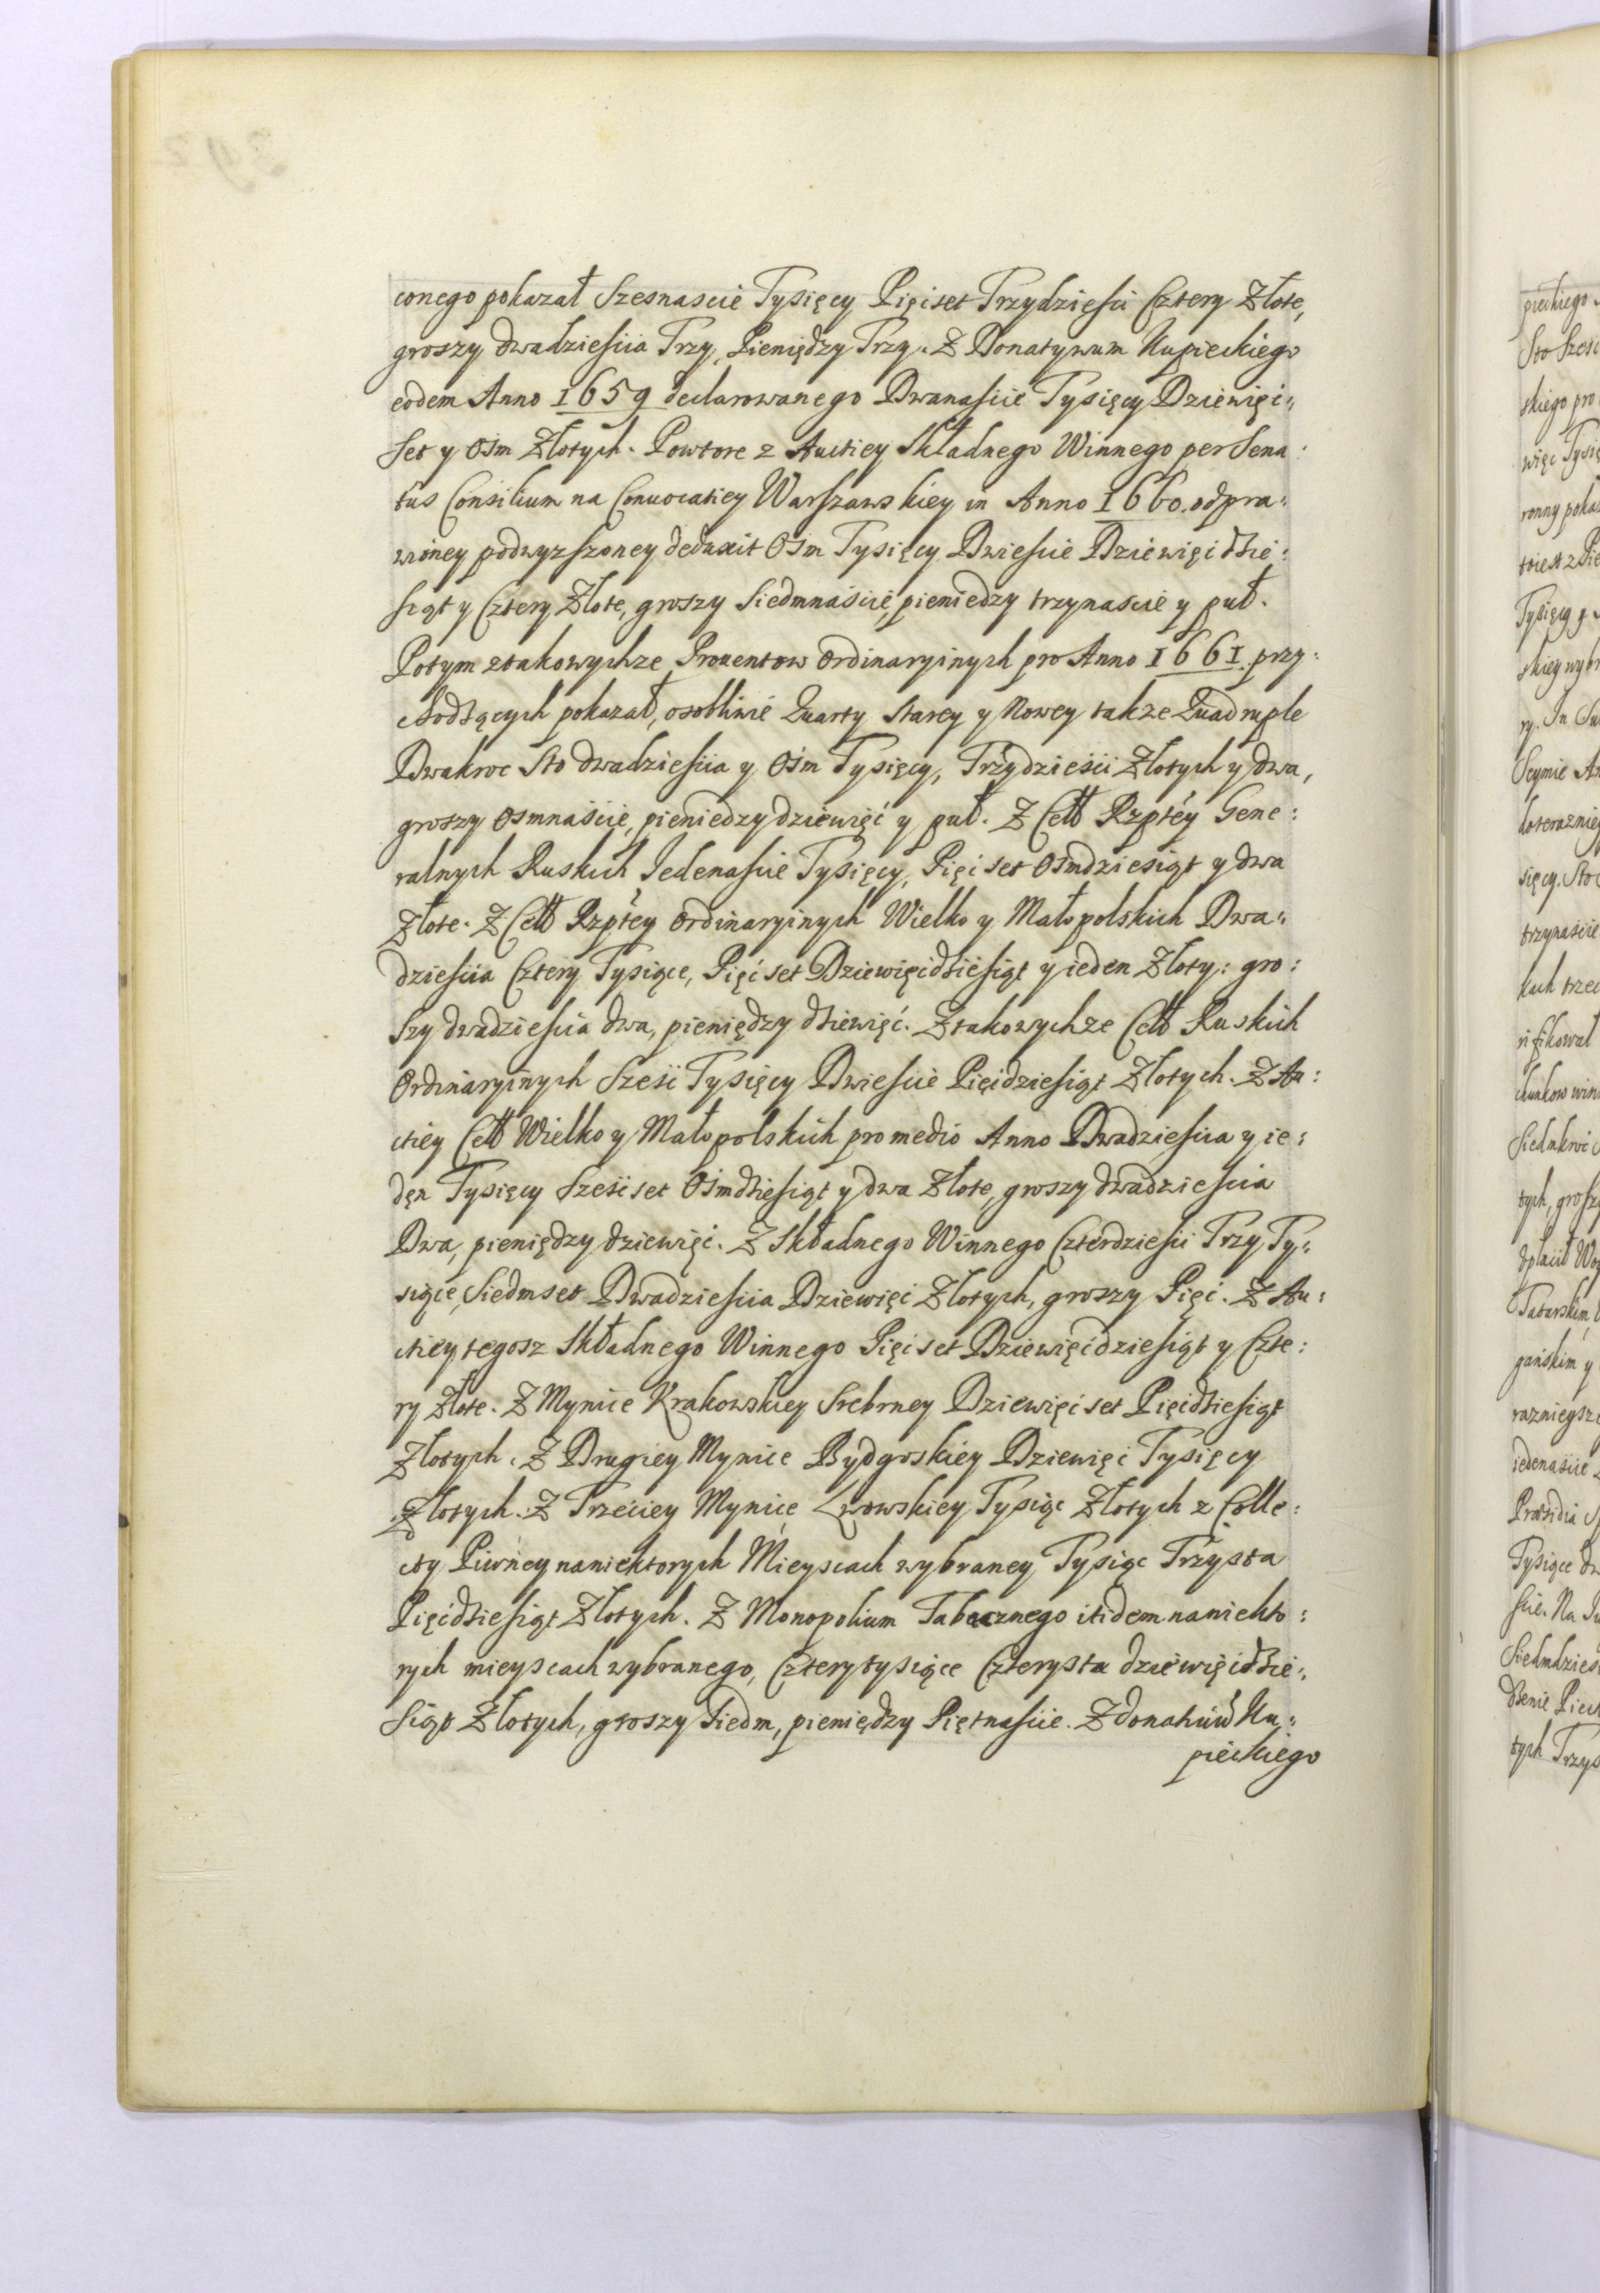 conego pokazał Szesnascie Tysięcy Pięiset Trzydziesci Cztery Złote,
groszy dwadziesiia Trzy, Pieniędzy Trzy. Z Donatywum Kupieckiego
eodem Anno 1659 declarowanego Dwanascie Tysięcy Dziewięć„
set y Ośm Złotych. Powtore z Auctiey Składnego Winnego per Sena:
tus Consilium na Conuocatiey Warszawskiey in Anno 1660. odpra„
wioney podwyzszoney deduxit Ośm Tysięcy Dwiescie Dziewięćdzie:
siąt y Cztery Złote, groszy Siedmnascie, pieniedzy trzynascie y puł.
Potym ztakowychze Prouentow ordinaryinych pro Anno 1661. przy:
chodzących pokazał, osobliwie Quarty Starey y Nowey takze Quadruple
Dwakroc Sto dwadziescia y Ośm Tysięcy, Trzydzieści Złotych y dwa,
groszy osmnaście, pieniedzy dziewięć y puł. Z Cełł Rzptéy Gene:
ralnych Ruskich Jedenascie Tysięcy, Pięć set Ośmdziesiąt y dwa
Złote. Z Cełł Rzptey ordinaryinych Wielko y Małopolskich Dwa„
dziescia Cztery Tysiące, Pięć set Dziewięćdziesiąt y ieden Złoty: gro:
szy dwadziescia dwa, pieniędzy dziewięć. Ztakowychze Cełł Ruskich
Ordinaryinych Sześć Tysięcy Dwiescie Pięćdziesiąt Złotych. Z Au:
ctiéy Cełł Wielko y Małopolskich pro medio Anno Dwadziescia y ie:
dęn Tysięcy Sześć set Ośmdziesiąt y dwa Złote, groszy dwadziescia
Dwa, pieniędzy dziewięć. Z Składnego Winnego Czterdziesci Trzy Ty„
siące, Siedmset Dwadziescia Dziewięć Złotych, groszy Pięć. Z Au:
ctiey tegosz Składnego Winnego Pięć set Dziewięćdziesiąt y Czte:
ry Złote. Z Mynice Krakowskiey Srebrney Dziewięć set Pięćdziesiąt
Złotych. Z Drugiey Mynice Bydgoskiéy Dziewięć Tysięcy
Złotych. Z Trzeciey Mynice Lwowskiey Tysiąc Złotych z Colle:
cty Piwney naniektorych Mieyscach wybraney Tysiąc Trzysta
Pięćdziesiąt Złotych. Z Monopolium Tabacznego itidem naniekto:
rych mieyscach wybranego, Cztery tysiące Czterysta dziewięćdzie„
siąt Złotych, groszy siedm, pieniędzy Piętnascie. Z donatiuũ Ku„
pieckiego